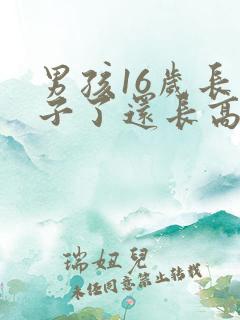 男孩16歲長
子了還長高
瑞妞兒
未經同意禁止轉載